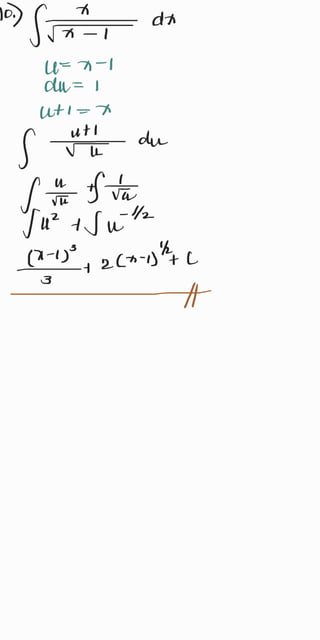 10.) ∫ x/√(x-1) dx
u = x-1
du = 1
u+1 = x
∫ (u+1)/√u du
∫ u/√u + ∫ 1/√u
∫ u² + ∫ u^(-1/2)
(x-1)³/3 + 2(x-1)^(1/2) + C